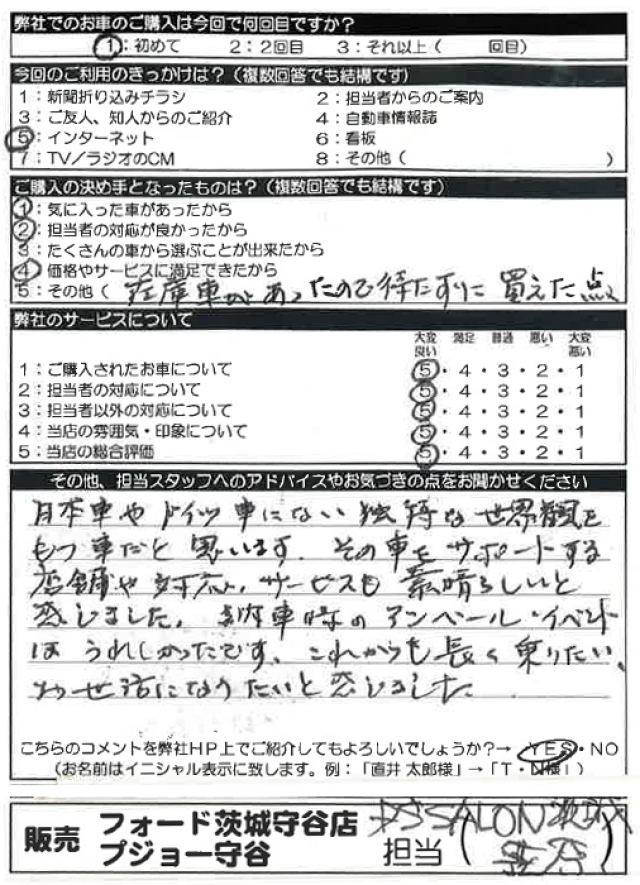 弊社でのお車のご購入は今回で何回目ですか？
1：初めて 2：2回目 3：それ以上（ 回目）
今回のご利用のきっかけは？（複数回答でも結構です）
1：新聞折り込みチラシ 2：担当者からのご案内
3：ご友人、知人からのご紹介 4：自動車情報誌
5：インターネット 6：看板
7：TV／ラジオのCM 8：その他（ ）
ご購入の決め手となったものは？（複数回答でも結構です）
1：気に入った車があったから
2：担当者の対応が良かったから
3：たくさんの車から選ぶことが出来たから
4：価格やサービスに満足できたから
5：その他（ 在庫車があったので待たずに買えた点
弊社のサービスについて
大変良い 満足 普通 悪い 大変悪い
1：ご購入されたお車について 5・4・3・2・1
2：担当者の対応について 5・4・3・2・1
3：担当者以外の対応について 5・4・3・2・1
4：当店の雰囲気・印象について 5・4・3・2・1
5：当店の総合評価 5・4・3・2・1
その他、担当スタッフへのアドバイスやお気づきの点をお聞かせください
日本車やドイツ車にない独特な世界観を
もつ車だと思います。その車をサポートする
店舗や対応、サービスも素晴らしいと
感じました。納車時のアンベール・イベント
はうれしかったです、これからも長く乗りたい、
お世話になりたいと感じました。
こちらのコメントを弊社HP上でご紹介してもよろしいでしょうか？→ YES・NO
（お名前はイニシャル表示に致します。例：「直井 太郎様」→「T・N様」）
販売 フォード茨城守谷店
プジョー守谷
担当（
DS SALON
）